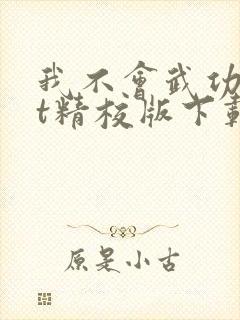 我不會武功
t精校版下載
原是小古